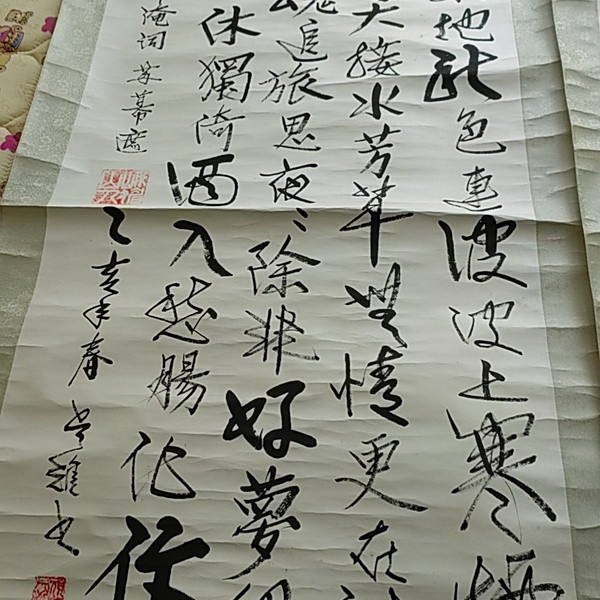 地秋色連波波上寒煙
天接水芳草無情更在
魂追旅思夜〻除非好夢留
休獨倚酒入愁腸化作
淹詞蘇幕遮
乙亥年春
書